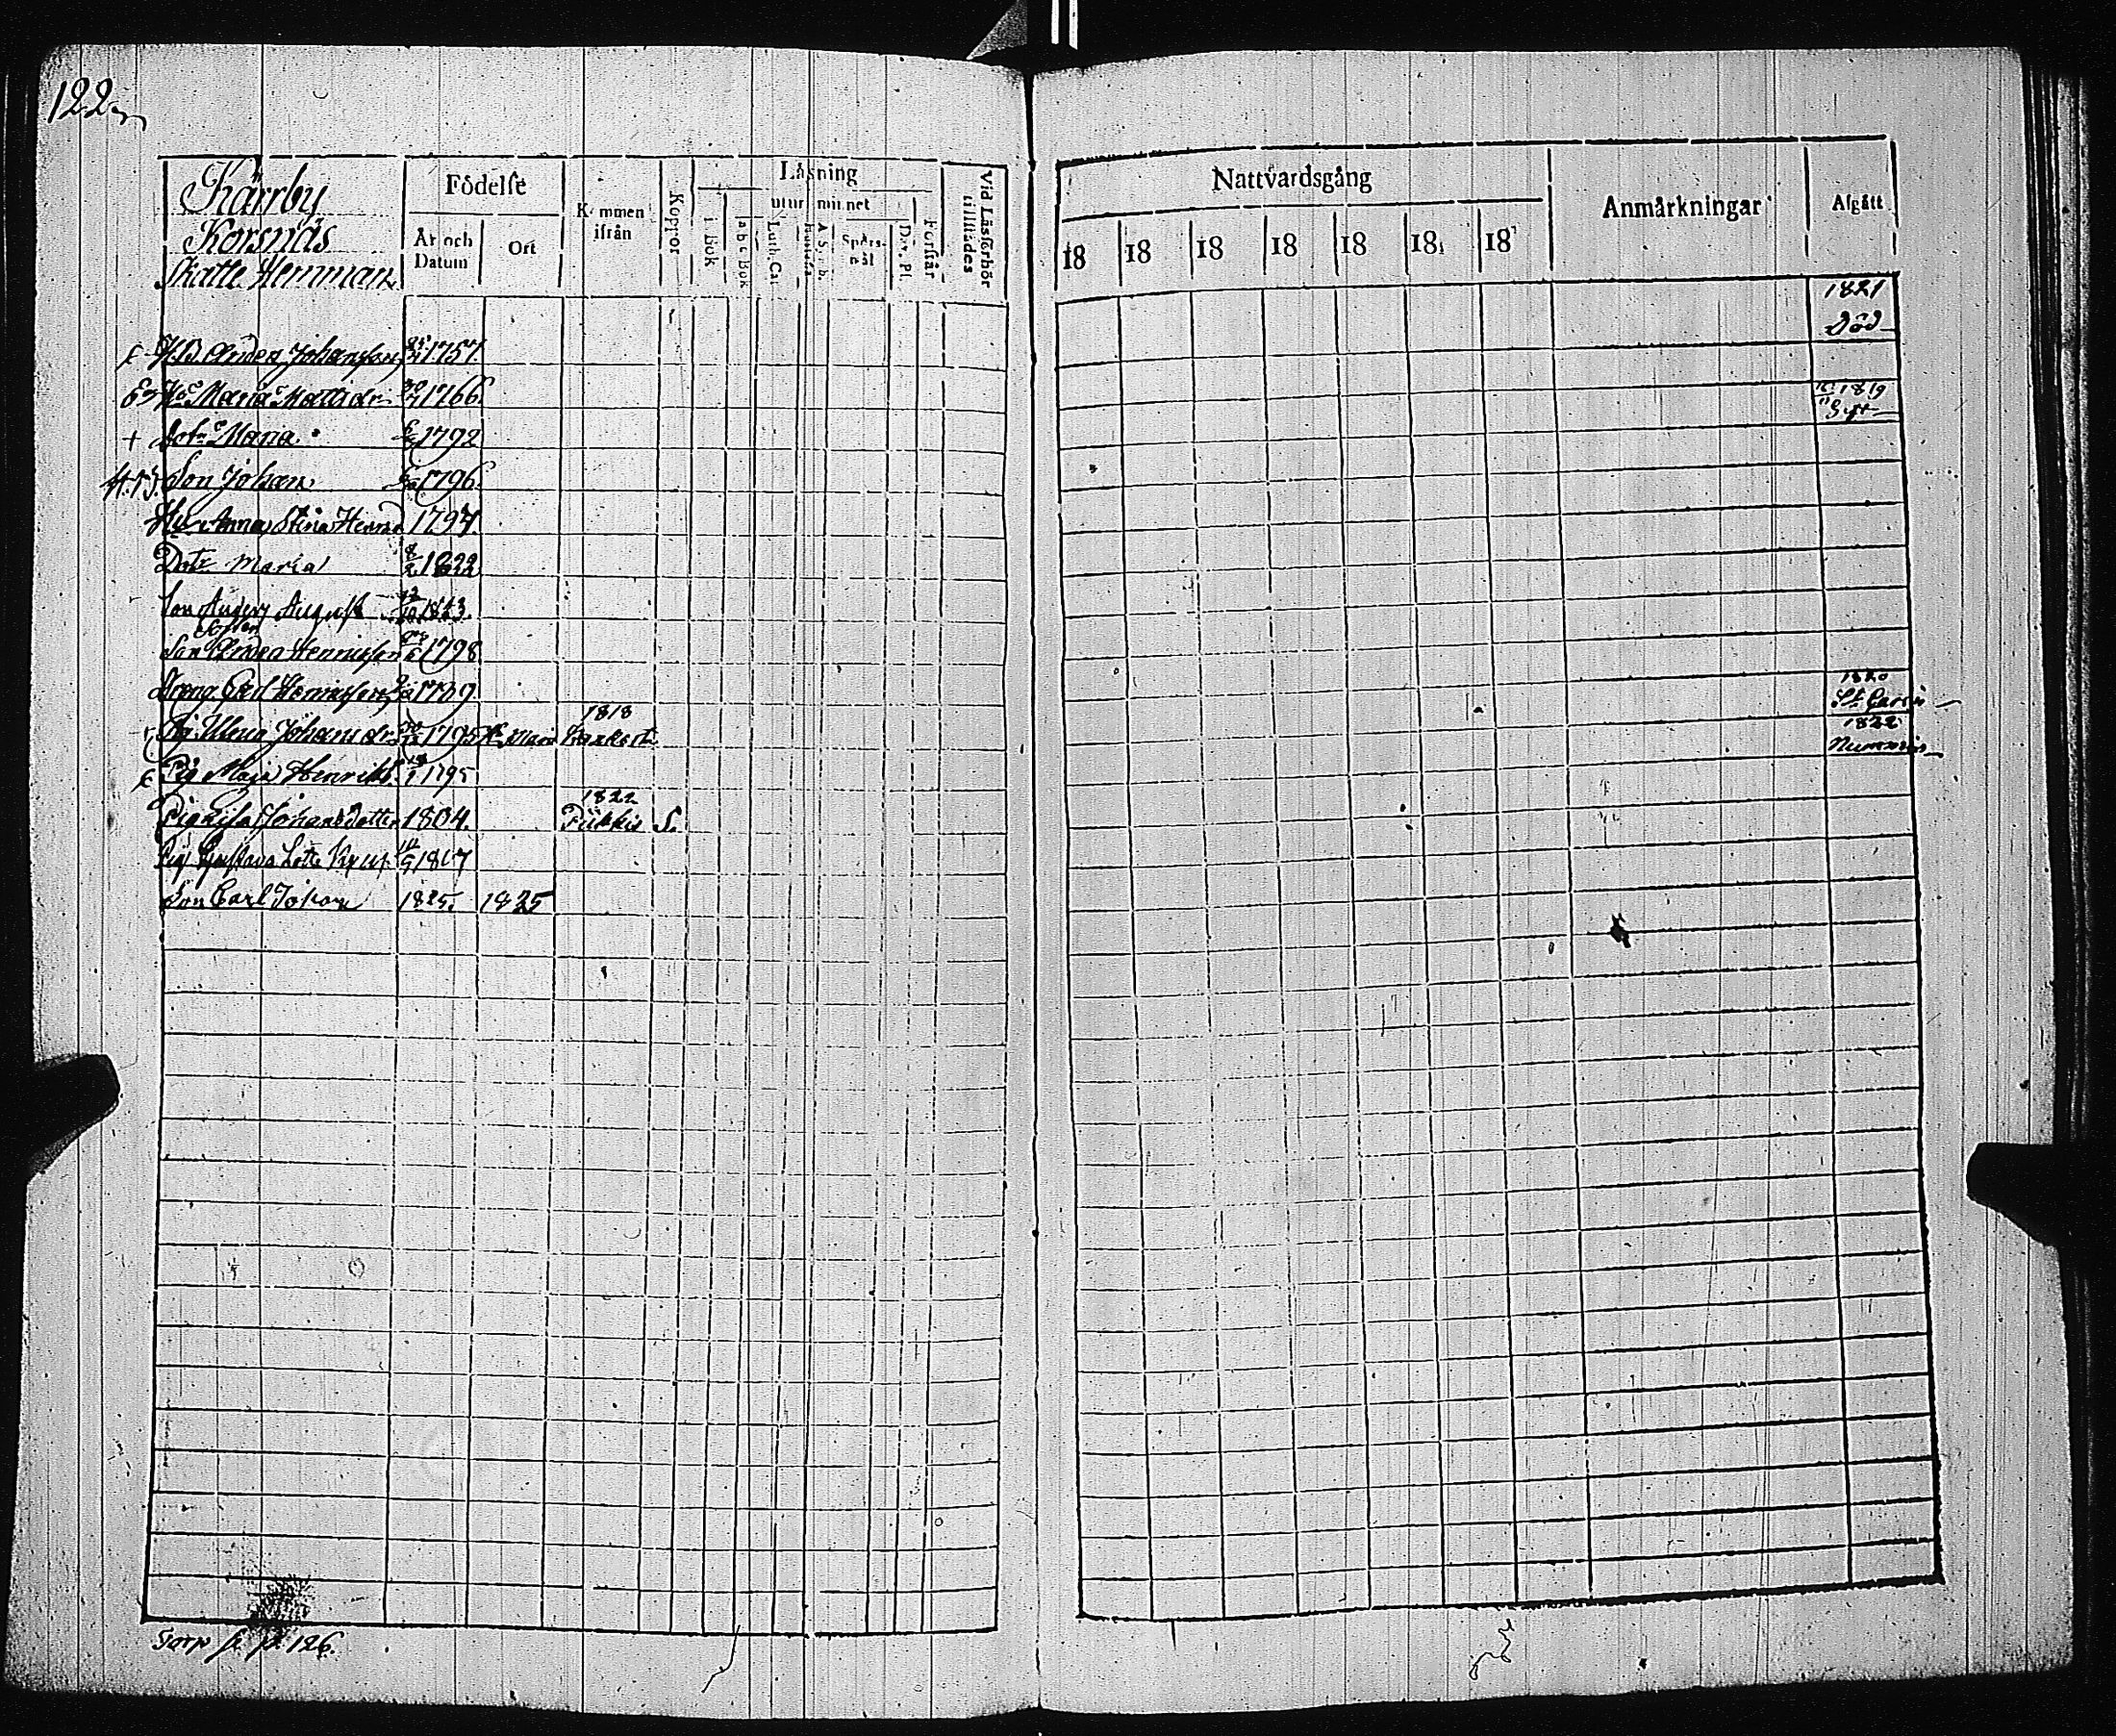 122.
Kärrby
Korsnäs
Skatte Hemman
Födelse
År och Datum
Ort
Kommen ifrån
Koppor
Läsning
utur minnet
i Bok
abc Bok
Luth. Cat
Hustafla
A. Symb.
Spörsmål
Dav. Ps.
Förstår
Vid Läsförhör tillstädes
Nattvardsgång
18 18 18 18 18 18 18
Anmärkningar
Afgått
Anders Johansson 1757. 1821 Död
Hu Maria Mattsdr 1766.
Dotr Maria 1792 1819 Gift
Son Johan 1796.
Hu Anna Stina 1794.
Dotr Maria 8/2 1822
Son Anders August 1823.
Son Anders Henricsson 1798
Dreng Carl 1820 St. Carins
Pig. Ulrica Johansdr 1795 1818 1822 Nummis
Pig Maja Henriks. 1795
Pig Lisa Johansdotter 1804. 1822 Piikkis S.
Pig Gustava Lotta 1807
Son Carl Johan 1825. 1825
Torp se p. 126.